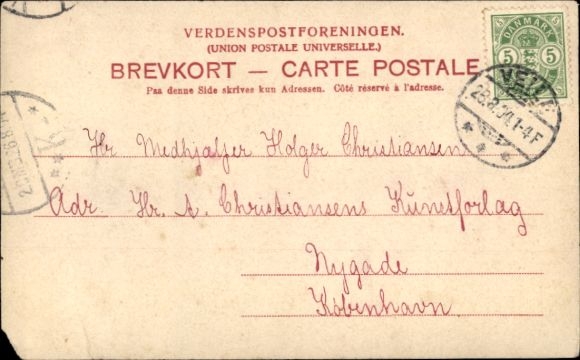 VERDENSPOSTFORENINGEN.
(UNION POSTALE UNIVERSELLE.)
BREVKORT — CARTE POSTALE
Paa denne Side skrives kun Adressen. Côté réservé à l'adresse.
DANMARK
5 5
VEJLE
1-4 F
Hr Medhjælper Holger Christiansen
Adr. Hr. A. Christiansens Kunstforlag
Nygade
København.